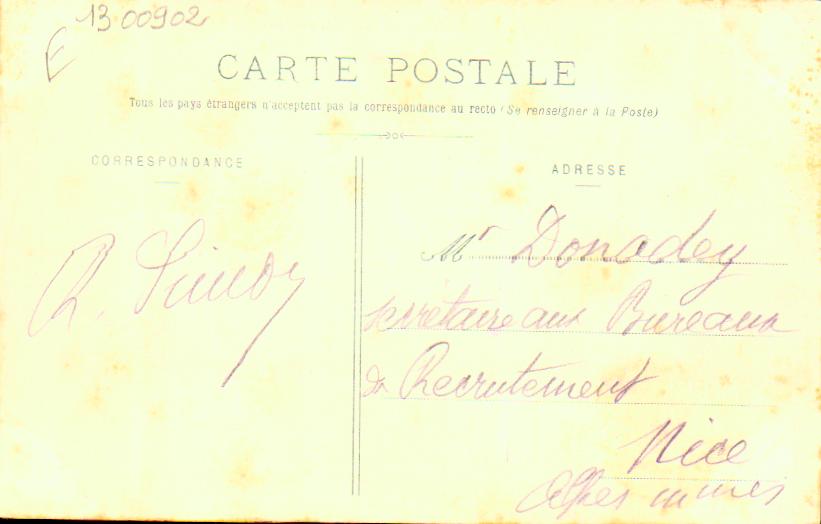 E 13 00902
CARTE POSTALE
Tous les pays étrangers n'acceptent pas la correspondance au recto (Se renseigner à la Poste)
CORRESPONDANCE
ADRESSE
R. Simon
Mr Donadey
secrétaire aux Bureaux
de Recrutement
Nice
Alpes mmes